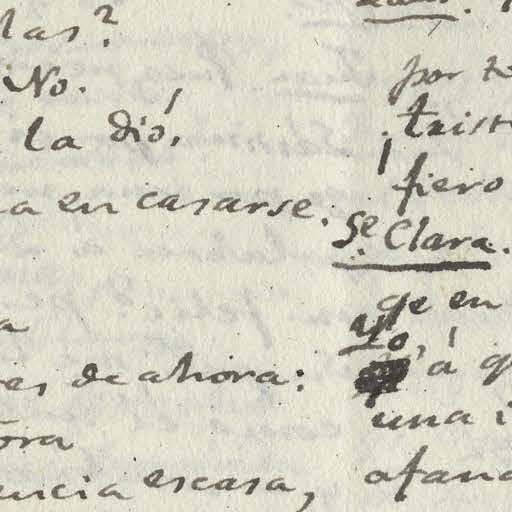 las?
No.
la dió,
a en casarse.
a
es de ahora:
óra
encia escasa,
por te
trist
fiero
Se Clara.
qe en
Yo,
á q
una i
afana